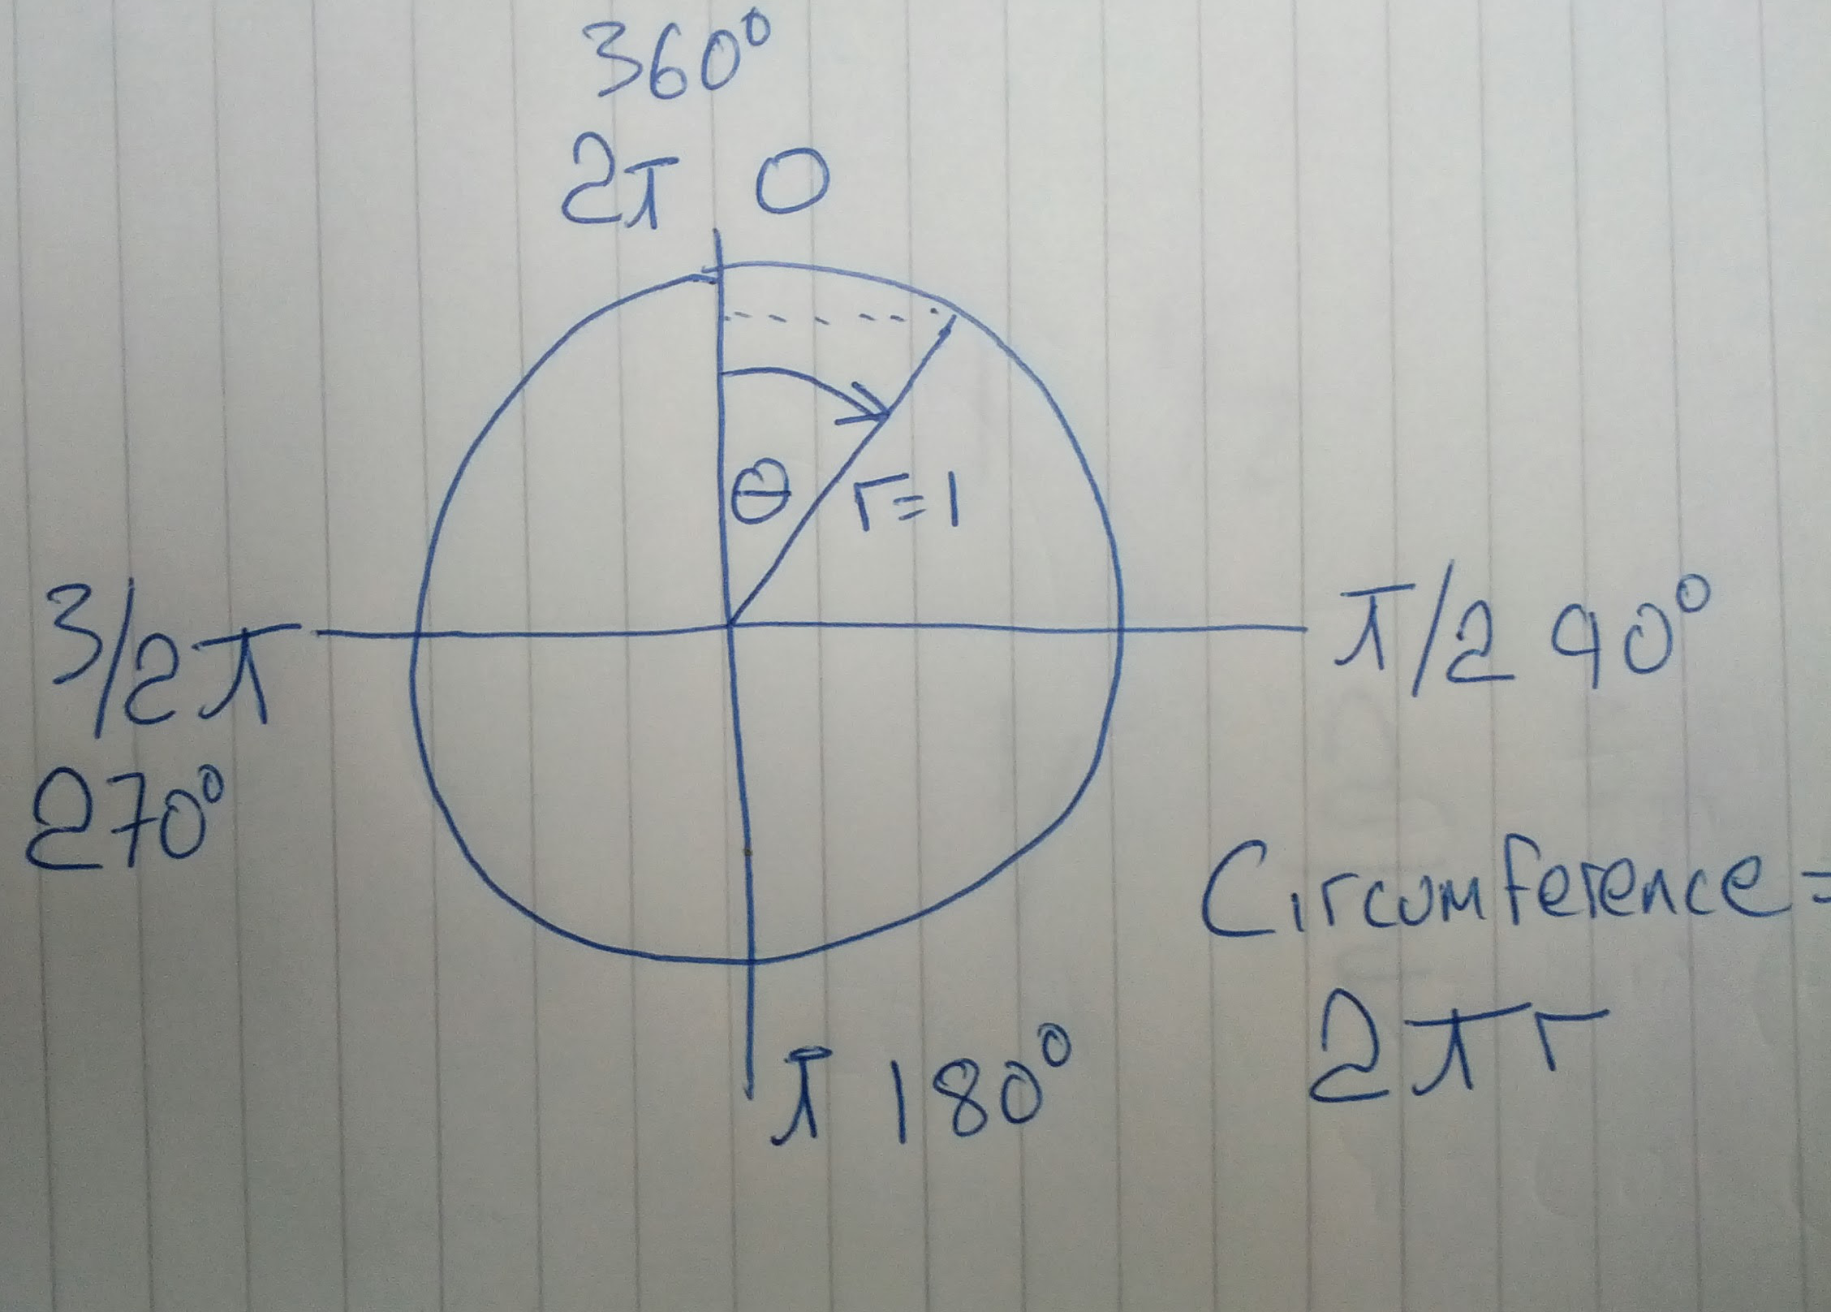 360°
2π 0
θ r=1
3/2π
π/2 90°
270°
Circumference=
2πr
π 180°